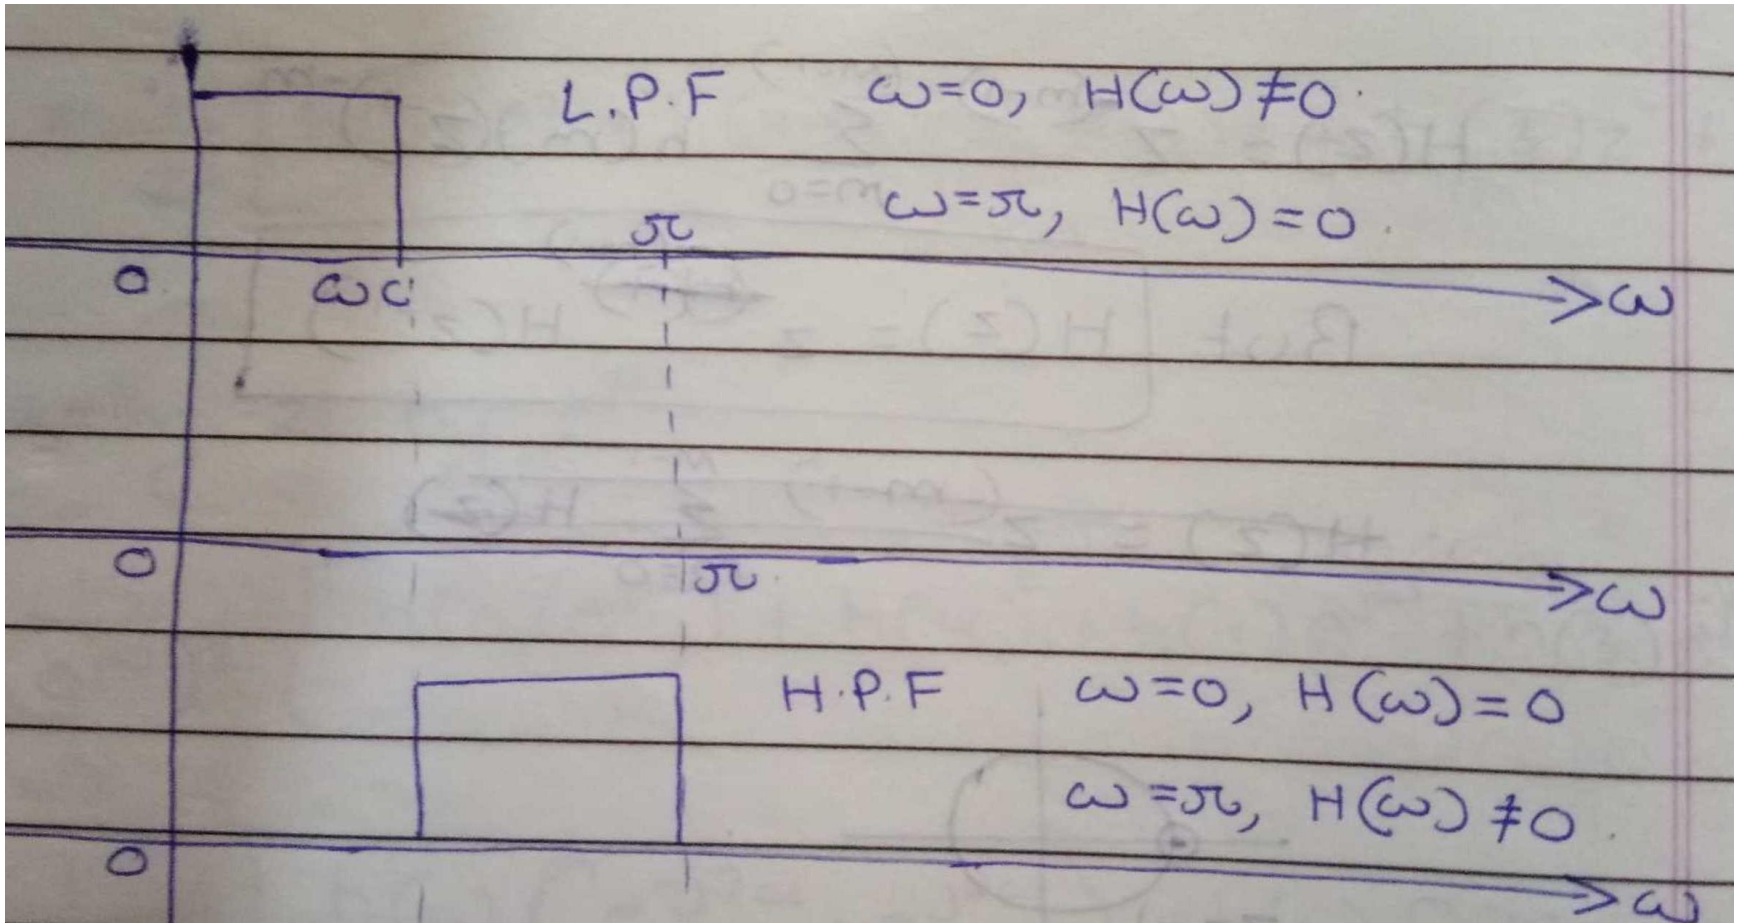 L.P.F ω=0, H(ω)≠0
ω=π, H(ω)=0
π
0 ωc ω
0 π ω
H.P.F ω=0, H(ω)=0
ω=π, H(ω)≠0
0 ω